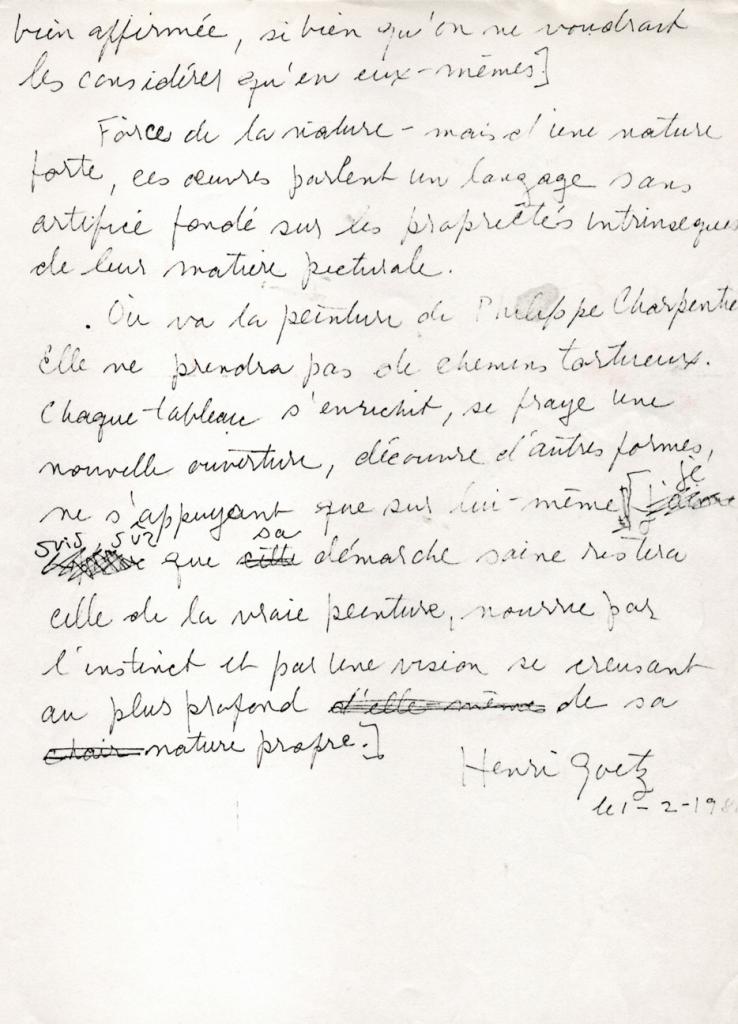 bien affirmée, si bien qu'on ne voudrait
les considérer qu'en eux-mêmes]
Force de la nature - mais d'une nature
forte, ces œuvres parlent un langage sans
artifice fondé sur les propriétés intrinsèques
de leur matière picturale.
. Où va la peinture de Philippe Charpentie
Elle ne prendra pas de chemins tortueux.
Chaque tableau s'enrichit, se fraye une
nouvelle ouverture, découvre d'autres formes,
ne s'appuyant que sur lui-même [je
suis sûr que cette sa démarche saine restera
celle de la vraie peinture, nourrie par
l'instinct et par une vision se creusant
au plus profond d'elle même de sa
chair nature propre.]
Henri Goetz
le 1-2-198